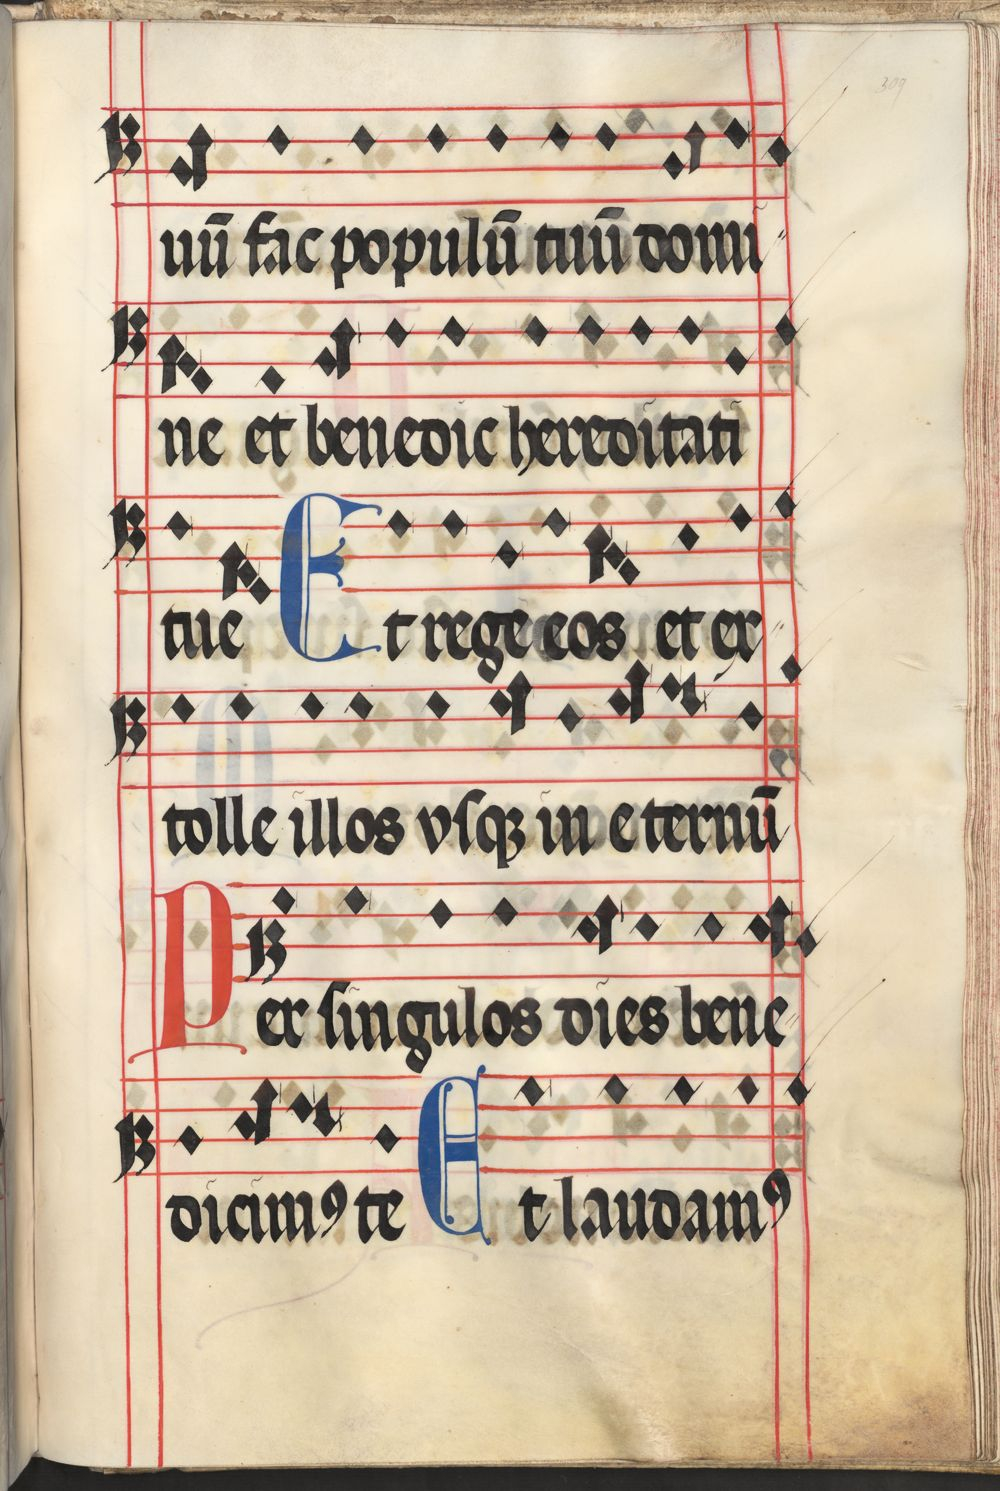 309
uū fac populū tuū domi
ne et benedic hereditati
tue Et rege eos et ex
tolle illos vsqꝫ in eternū
Per singulos dies bene
dicimꝰ te Et laudamꝰ